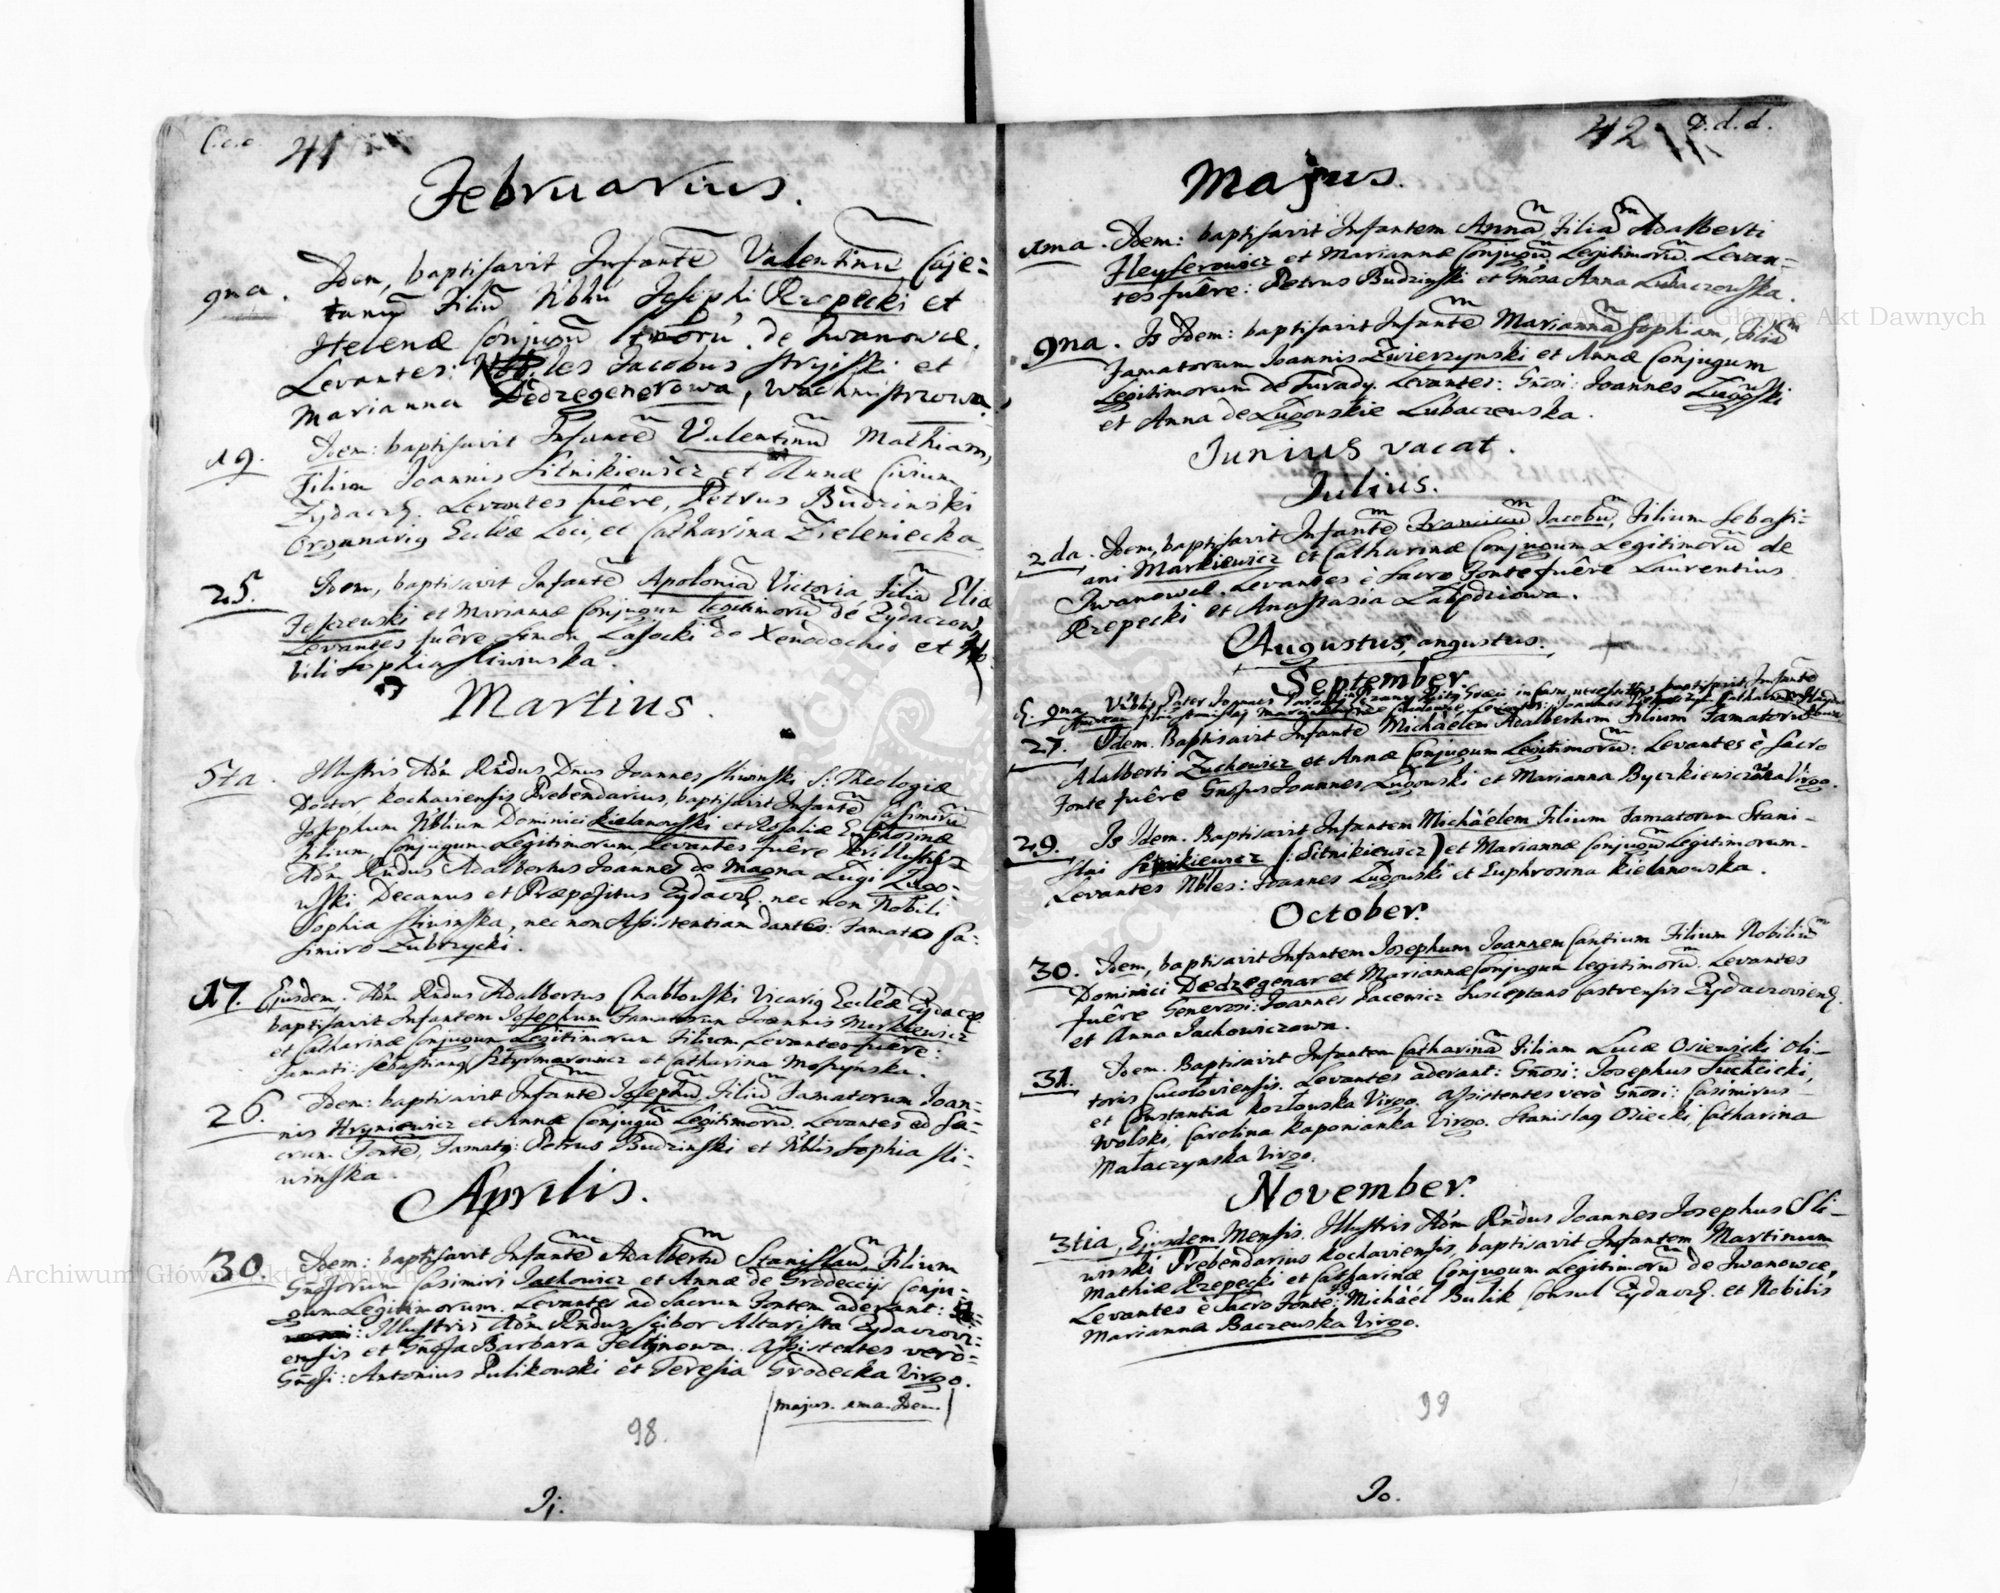 C.c.c
41
Februarius.
9na. Idem, baptisavit Infantē Valentinū Caje=
tanū Filiū Nblīu Josephi Rzepecki et
Helenæ Conjugū de Iwanowce.
Levantes: Nobiles Jacobus Stryiski et
Marianna Dedzegenerowa, Wachmistrzowa.
19. Idem: baptisavit Infantē Valentinū Mathiam,
Filium Joannis Sitnikiewicz et Annæ Civium
Zydacz. Levantes fuêre, Petrus Budzinski
Organarig Ecclæ Loci, et Catharina Zieleniecka.
25. Idem, baptisavit Infantē Apoloniā Victoria, Filiā Eliæ
Jeszewski et Mariannæ Conjugum legitimorū de Zydaczow,
Levantes fuêre Simon Lasocki de Xenodochio et No-
bili Sophia Sliwinska.
Martius.
5ta. Illustris Adm Rndus Dnus Joannes Sliwinski S: Theologiæ
Doctor, Kochaviensis Præbendarius, baptisavit Infantē Casimirū
Josephum Nblium Dominici Kielanowski et Rosaliæ Euphrosinæ
Filium, Conjugum Legitimorum Levantes fuêre Perillustris
Adm Rndus Adalbertus Joannes de Magna Lugi Lugo-
wski Decanus et Præpositus Zydacz. nec non Nobili
Sophia Sliwinska, nec non Assistentiam dantes: Famato Ca-
simiro Zubrzycki.
17. Ejusdem. Adm Rndus Adalbertus Chablowski Vicarig Ecclæ Zydacz.
baptisavit Infantem Josephum Famatorum Joannis Markiewicz
et Catharinæ Conjugum Legitimorum Filium Levantes fuêre:
Famati: Sebastiang Sztyrmerowicz et Catharina Moszynska.
26. Idem: baptisavit Infantē Josephū Filiū Famatorum Joan=
nis Hryniewicz et Annæ Conjugū Legitimorū. Levantes ad Sa=
crum Fontē, Famatg: Petrus Budzinski et Nblis Sophia Sli=
winska.
Aprilis.
30. Idem: baptisavit Infantē Adalbertū Stanislaū Filium
Gnosorum Casimiri Jachowicz et Annæ de Grodeccij Conju=
gum Legitimorum. Levantes ad Sacrum Fontem aderant:
Illustris Adm Rndus Scibor Altarista Zydaczovi=
ensis et Gnosa Barbara Feltynowa. Assistentes verò=
Gnosi: Antonius Pulikowski et Teresia Grodecka Virgo.
majus. 1ma. Idem.
98.
Jj.
42
D.d.d.
Majus.
1ma. Idem: baptisavit Infantem Annā, Filiā Adalberti
Heyserowicz et Mariannæ Conjugū Legitimorū. Levan=
tes fuêre: Petrus Budzinski et Gnosa Anna Lubaczowska.
9na. Is Idem: baptisavit Infantē Mariannā Sophiam, Filiā
Famatorum Joannis Zwierzynski et Annæ Conjugum
Legitimorum de Turady. Levantes: Gnosi: Joannes Lugowski
et Anna de Lugowskie Lubaczewska.
Junius vacat.
Julius.
2da. Idem, baptisavit Infantē Franciscū Jacobū, Filium Sebasti=
ani Markiewicz et Catharinæ Conjugum Legitimorū de
Iwanowce. Levantes è Sacro Fonte fuêre Laurentius
Rzepecki et Anastasia Labędziowa.
Augustus, angustus.
September.
27. Idem. Baptisavit Infantē Michaëlem Adalbertum Filium Famatorū
Adalberti Zuchowicz et Annæ Conjugum Legitimorū: Levantes è Sacro
Fonte fuêre Gnosus Joannes Lugowski et Marianna Byczkiewiczowna Virgo.
29. Is Idem. Baptisavit Infantem Michäelem Filium Famatorum Stani-
slai Sitnikiewicz (:Sitnikiewicz) et Mariannæ Conjugū Legitimorum.
Levantes Nbles: Joannes Lugowski et Euphrosina Kielanowska.
October.
30. Idem, baptisavit Infantem Josephum Joannem Cantium Filium Nobiliū
Dominici Dedzegenar et Mariannæ Conjugum legitimorū. Levantes
fuêre Generosi: Joannes Pacewicz Susceptans Castrensis Zydacoviens.
et Anna Jachowiczowa.
31. Idem. Baptisavit Infantem Catharinā Filiam Lucæ Osiewicki Oli-
toris Cucoloviensis. Levantes aderant: Gnosi: Josephus Suchcicki,
et Constantia Kozlowska Virgo. Assistentes verò Gnosi: Casimirus
Wolski, Carolina Kaponianka Virgo. Stanislag Osiecki, Catharina
Malaczynska Virgo.
November.
3tia, Ejusdem Mensis. Illustris Adm Rndus Joannes Josephus Sli-
winski Præbendarius Kochaviensis, baptisavit Infantem Martinum
Mathiæ Rzepecki et Catharinæ Conjugum Legitimorū de Iwanowce,
Levantes è Sacro Fonte: Michäel Bulik Consul Zydacz. et Nobilis
Marianna Baczewska Virgo.
99
Jo.
Archiwum Główne Akt Dawnych
Archiwum Główne Akt Dawnych